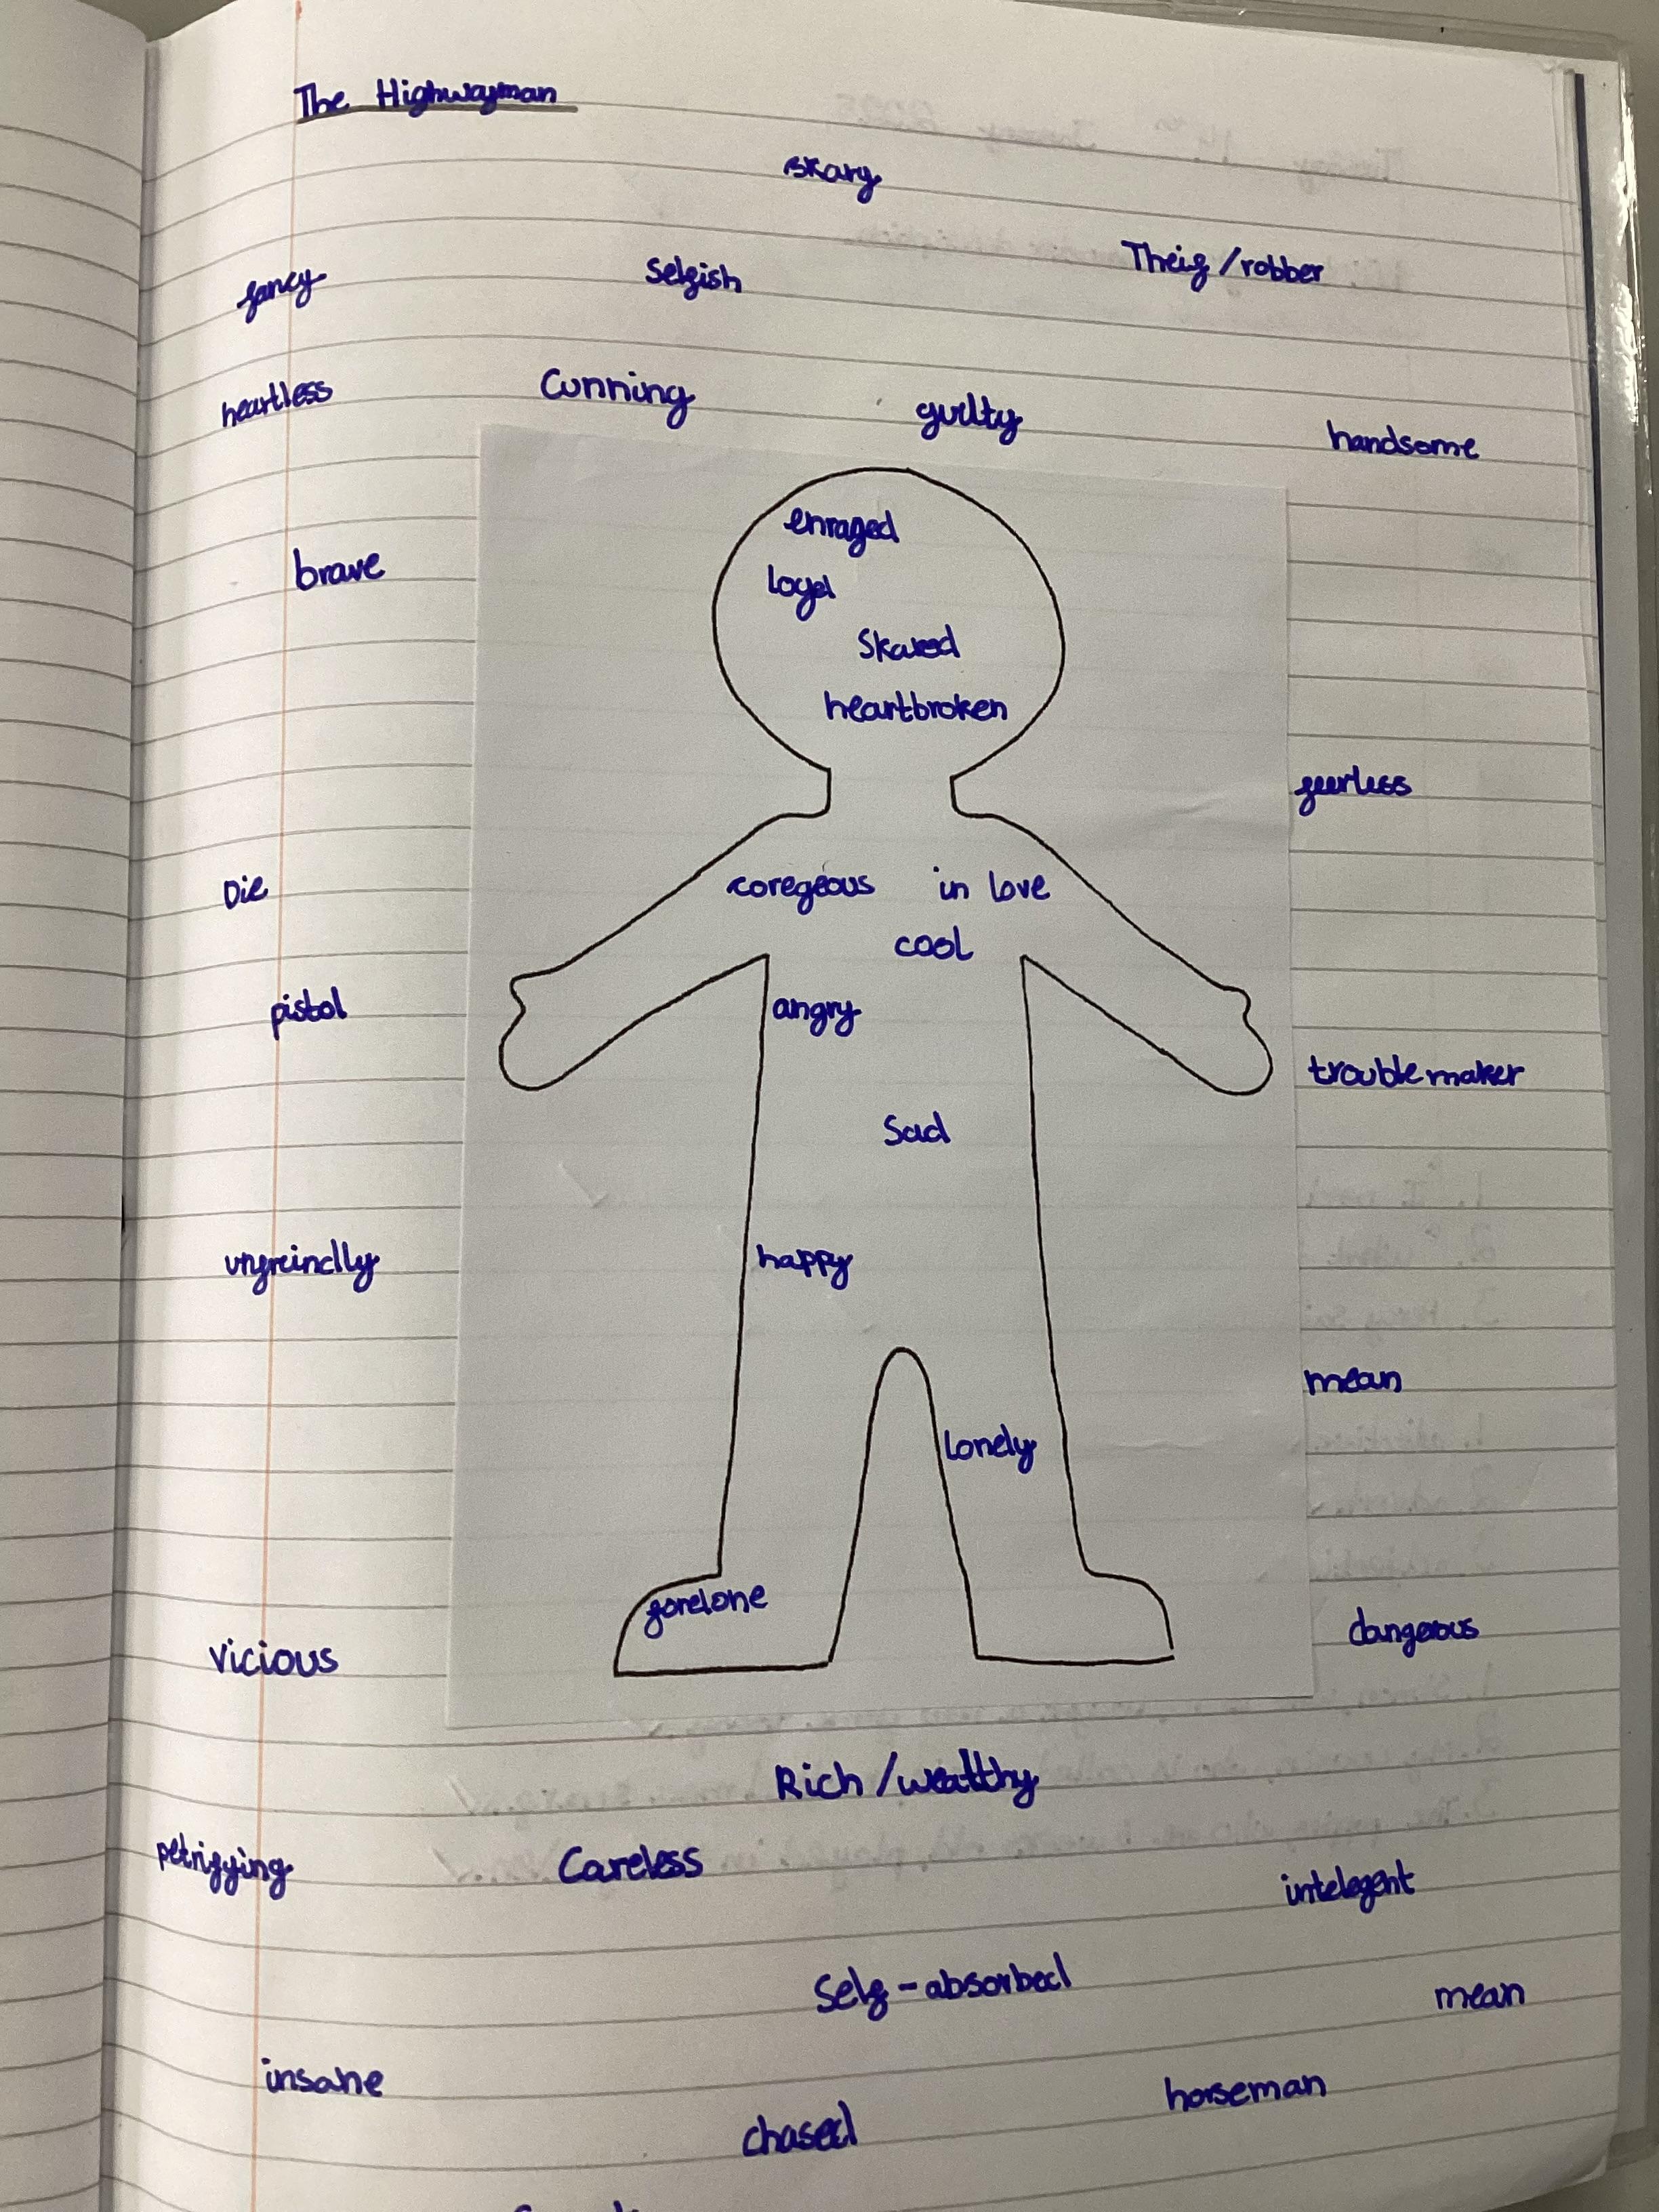 The Highwayman
skary
fancy
selfish
Theif/robber
heartless
Cunning
guilty
handsome
enraged
brave
loyal
Skared
heartbroken
feerless
Die
coregeous
in love
cool
pistol
angry
trouble maker
Sad
unfreindly
happy
mean
lonely
forelone
vicious
dangerous
Rich/wealthy
petrifying
Careless
intelegent
Self-absorbed
mean
insane
horseman
chased